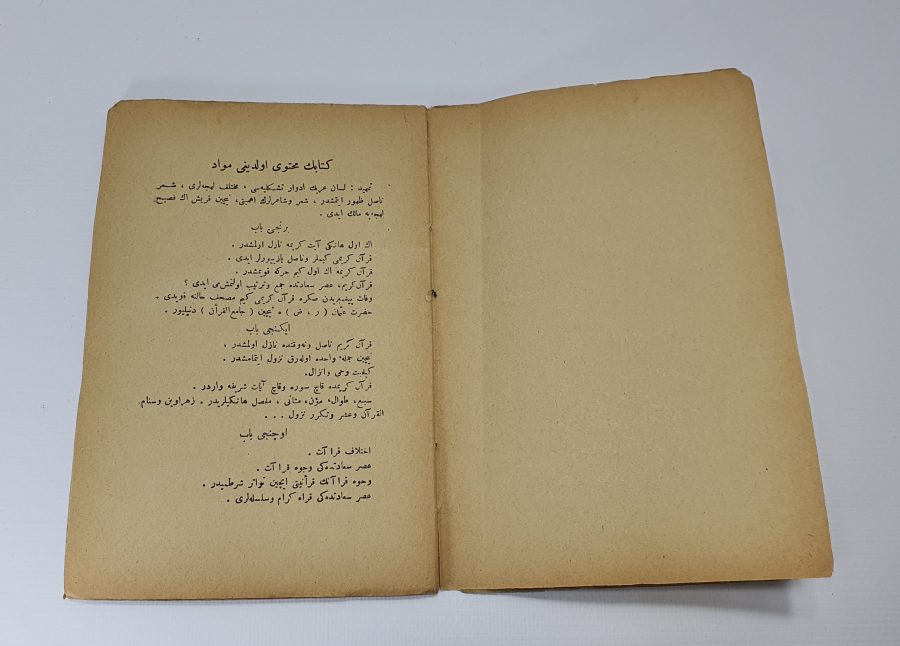 كتابك محتوى اولدیغی مواد
تمهید : لسان عربك ادوار تشكلیه‌سی ، مختلف لهجه‌لری ، شـعر
ناصل ظهور ایتمشدر . شعر وشاعرلرك اهمیتی، نیچین قریش اك فصیح
لهجه‌یه مالك ایدی .
برنجی باب
اك اول هانكی آیت كریمه نازل اولمشدر .
قرآن كریمی كیملر وناصل یازییورلر ایدی .
قرآن كریمه اك اول كیم حركه قویمشدر .
قرآن كریم، عصر سعادتده جمع وترتیب اولنمش‌می ایدی ؟
وفات پیغمبریدن صكره قرآن كریمی كیم مصحف حالنه قویدی .
حضرت عثمان ( ر . ض ) ه نیچین ( جامع القرأن ) دنیلیور .
ایكنجی باب
قرآن كریم ناصل ونه‌وقتده نازل اولمشدر .
نیچین جملهٔ واحده اوله‌رق نزول ایتمامشدر .
كیفیت وحی وانزال.
قرآن كریمده قاچ سوره وقاچ آیات شریفه واردر .
سبع، طوال، مئون، مثانی ، مفصل هانكیلریدر . زهراوین وسنام
القرآن وعشر وتكرر نزول . . .
اوچنجی باب
اختلاف قرا آت .
عصر سعادتده‌كی وجوه قرا آت .
وجوه قرا آتك قرآنیتی ایچین تواتر شرطمیدر .
عصر سعادتده‌كی قراء كرام وسلسله‌لری .